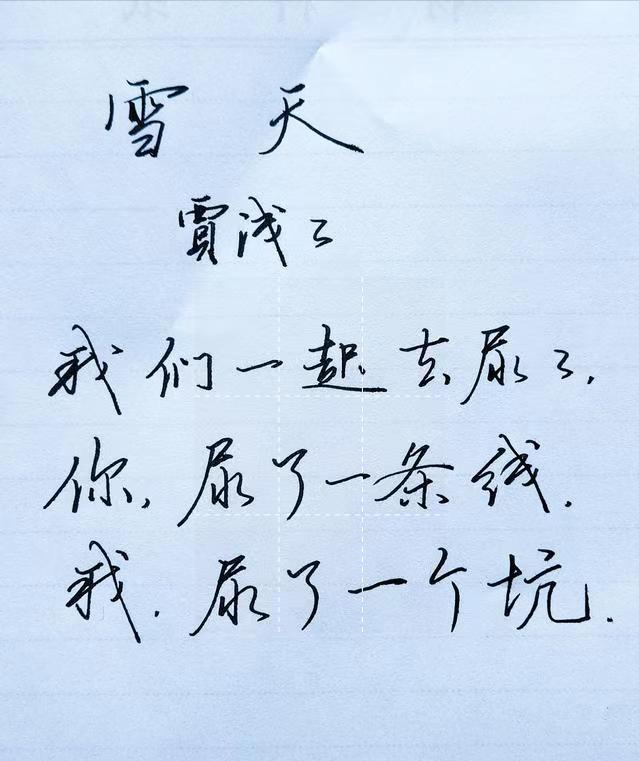 雪天
贾浅々
我们一起去尿々,
你,尿了一条线.
我.尿了一个坑.